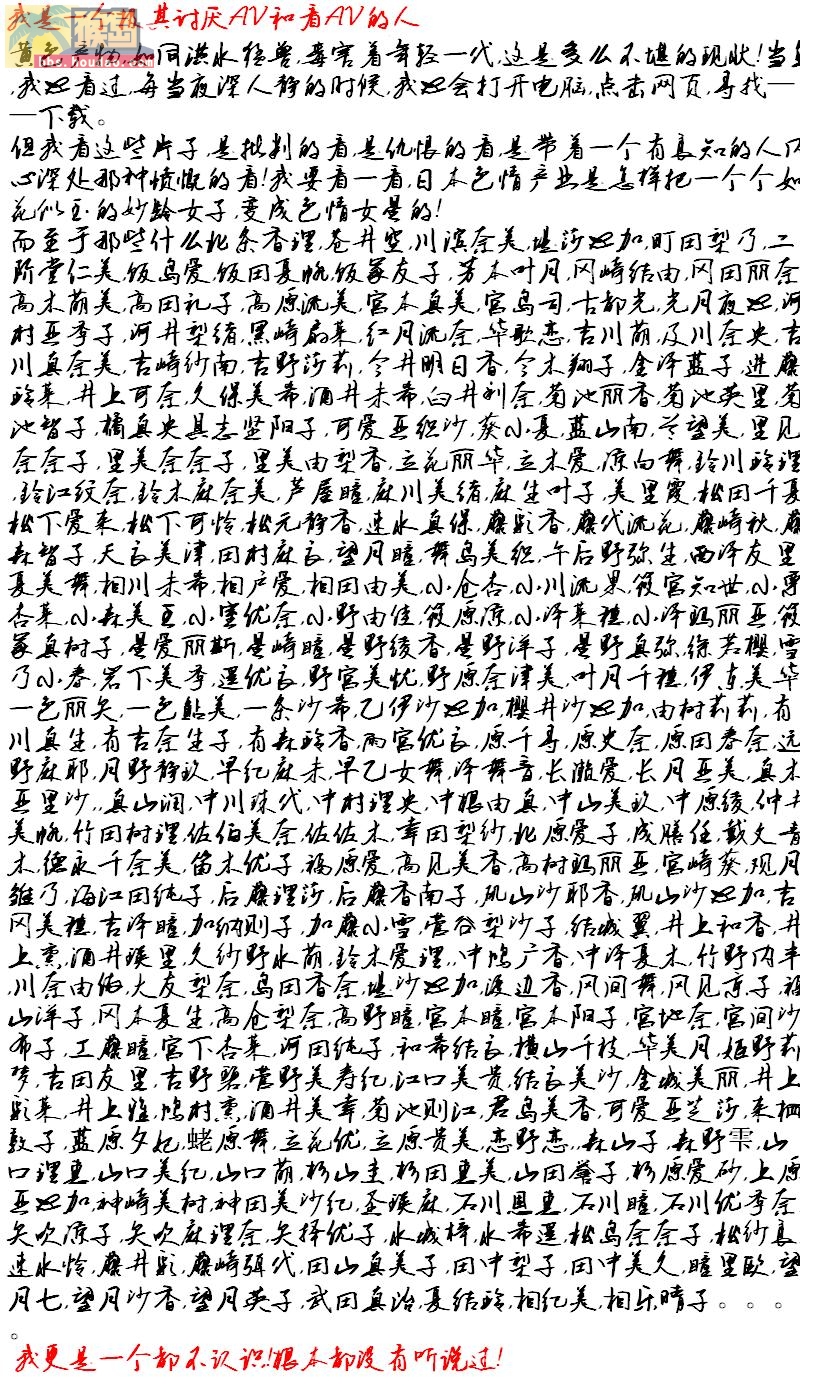 我是一个极其讨厌AV和看AV的人
黄色产物,如同洪水猛兽,毒害着年轻一代,这是多么不堪的现状!当
,我也看过,每当夜深人静的时候,我也会打开电脑,点击网页,寻找一
一下载。
但我看这些片子,是批判的看,是仇恨的看,是带着一个有良知的人内
心深处那种愤慨的看!我要看一看,日本色情产业是怎样把一个个如
花似玉的妙龄女子,变成色情女星的!
而至于那些什么北条香理,苍井空,川滨奈美,堤莎也加,町田梨乃,二
阶堂仁美,饭岛爱,饭田夏帆,饭冢友子,芳本叶月,冈崎结由,冈田丽奈
高木萌美,高田礼子,高原流美,宫本真美,宫岛司,古都光,光月夜也,河
村亚季子,河井梨绪,黑崎扇菜,红月流奈,华歌恋,吉川萌,及川奈央,吉
川真奈美,吉崎纱南,吉野莎莉,今井明日香,今木翔子,金泽蓝子,进藤
玲菜,井上可奈,久保美希,酒井未希,臼井利奈,菊池丽香,菊池英里,菊
池智子,橘真央具志坚阳子,可爱亚织沙,葵小夏,蓝山南,兰望美,里见
奈奈子,里美奈奈子,里美由梨香,立花丽华,立木爱,凉白舞,铃川玲理
,铃江纹奈,铃木麻奈美,芦屋瞳,麻川美绪,麻生叶子,美里霞,松田千夏
松下爱来,松下可怜,松元静香,速水真保,藤彩香,藤代流花,藤崎秋,藤
森智子,天衣美津,田村麻衣,望月瞳,舞岛美织,午后野弥生,西泽友里
夏美舞,相川未希,相户爱,相田由美,小仓杏,小川流果,筱宫知世,小栗
杏菜,小森美王,小室优奈,小野由佳,筱原凉,小泽菜穗,小泽玛丽亚,筱
冢真树子,星爱丽斯,星崎瞳,星野绫香,星野洋子,星野真弥,徐若樱,雪
乃小春,岩下美季,遥优衣,野宫美忧,野原奈津美,叶月千穗,伊东美华
一色丽矢,一色鲇美,一条沙希,乙伊沙也加,樱井沙也加,由树莉莉,有
川真生,有吉奈生子,有森玲香,雨宫优衣,原千寻,原史奈,原田春奈,远
野麻耶,月野静玖,早纪麻未,早乙女舞,泽舞音,长濑爱,长月亚美,真木
亚里沙,,真山润,中川珠代,中村理央,中根由真,中山美玖,中原绫,仲井
美帆,竹田树理,佐伯美奈,佐佐木,幸田梨纱,北原爱子,成膳任,戴文青
木,德永千奈美,笛木优子,福原爱,高见美香,高树玛丽亚,宫崎葵,观月
雏乃,海江田纯子,后藤理莎,后藤香南子,矶山沙耶香,矶山沙也加,吉
冈美穗,吉泽瞳,加纳则子,加藤小雪,菅谷梨沙子,结城翼,井上和香,井
上熏,酒井瑛里,久纱野水萌,铃木爱理,,中鸠广香,中泽夏木,竹野内丰
川奈由纳,大友梨奈,岛田香奈,堤沙也加,渡边香,风间舞,风见京子,福
山洋子,冈本夏生,高仓梨奈,高野瞳,宫本瞳,宫本阳子,宫地奈,宫间沙
布子,工藤瞳,宫下杏菜,河田纯子,和希结衣,横山千枝,华美月,姬野莉
梦,吉田友里,吉野碧,菅野美寿纪,江口美贵,结衣美沙,金城美丽,井上
彩菜,井上雅,鸠村熏,酒井美幸,菊池则江,君岛美香,可爱亚芝莎,来栖
敦子,蓝原夕妃,蛯原舞,立花优,立原贵美,恋野恋,,森山子,森野雫,山
口理惠,山口美纪,山口萌,杉山圭,杉田惠美,山田誉子,杉原爱砂,上原
亚也加,神崎美树,神田美沙纪,圣瑛麻,石川恩惠,石川瞳,石川优季奈
矢吹凉子,矢吹麻理奈,矢择优子,水城梓,水希遥,松岛奈奈子,松纱良
速水怜,藤井彩,藤崎弭代,田山真美子,田中梨子,田中美久,瞳里欧,望
月七,望月沙香,望月英子,武田真治,夏结玲,相纪美,相乐晴子。。。
。
我更是一个都不认识!根本都没有听说过!